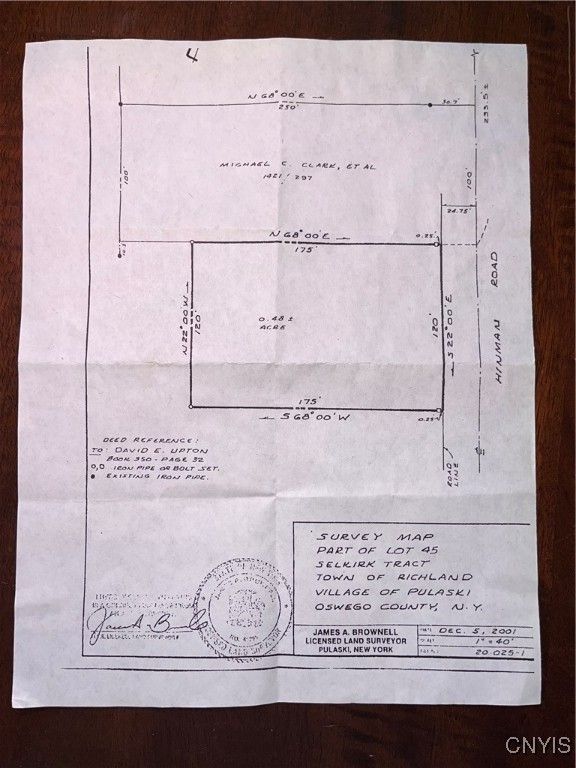 4
N 68° 00' E
250'
30.7'
233.5' ±
100'
100'
MICHAEL C. CLARK, ET AL
1421 / 297
24.75'
N 68° 00' E
175'
0.25'
N 22° 00' W
120'
0.48 ±
ACRE
120'
S 22° 00' E
HINMAN ROAD
175'
S 68° 00' W
0.25'
ROAD
LINE
DEED REFERENCE:
TO: DAVID E. UPTON
BOOK 350 - PAGE 32
O, □ IRON PIPE OR BOLT SET.
● EXISTING IRON PIPE.
SURVEY MAP
PART OF LOT 45
SELKIRK TRACT
TOWN OF RICHLAND
VILLAGE OF PULASKI
OSWEGO COUNTY, N.Y.
JAMES A. BROWNELL
LICENSED LAND SURVEYOR
PULASKI, NEW YORK
DEC. 5, 2001
1" = 40'
20.025-1
LICENSED LAND SURVEYOR
CNYIS